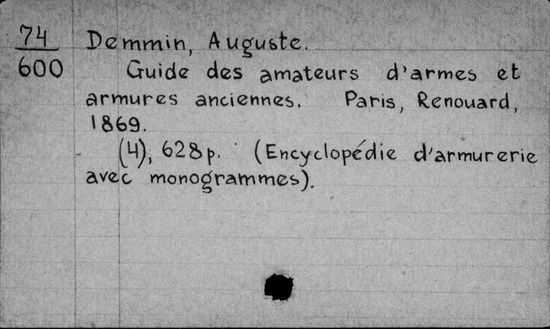 74 Demmin, Auguste.
600 Guide des amateurs d'armes et
armures anciennes. Paris, Renouard,
1869.
(4), 628p. (Encyclopédie d'armurerie
avec monogrammes).